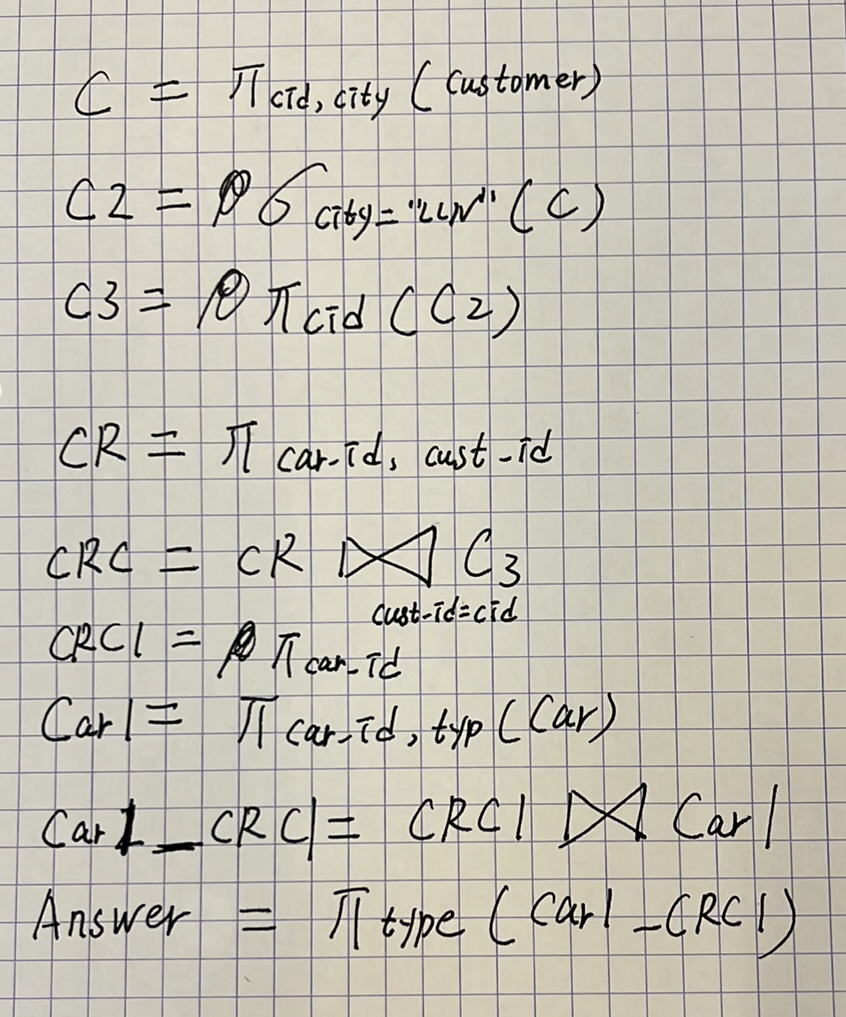 C = π cid, city (customer)
C2 = σ city="LLN" (C)
C3 = π cid (C2)
CR = π car-id, cust-id
CRC = CR ⋈ C3
cust-id=cid
CRC1 = π car-id
Car1 = π car-id, typ (Car)
Car1_CRC1 = CRC1 ⋈ Car1
Answer = π type (Car1_CRC1)